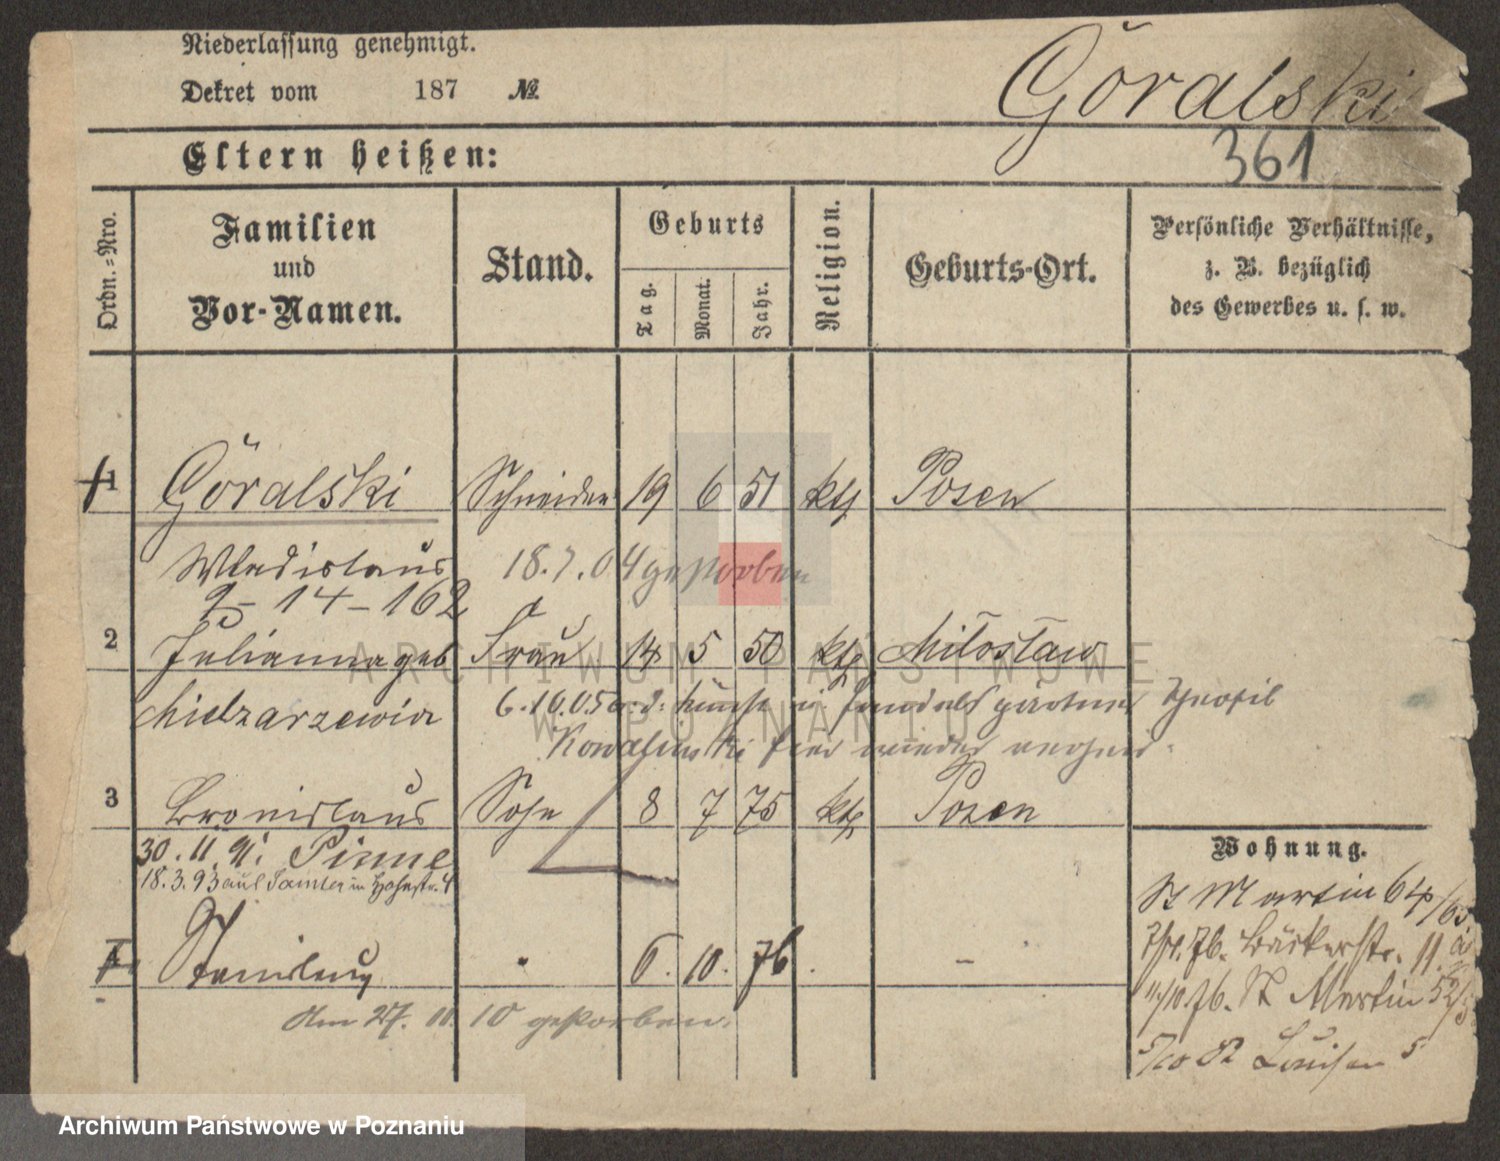 Niederlassung genehmigt.
Dekret vom 187 №
Góralski
361
Eltern heißen:
Ordn.-Nro.
Familien
und
Vor-Namen.
Stand.
Geburts
Tag.
Monat.
Jahr.
Religion.
Geburts-Ort.
Persönliche Verhältnisse,
z. B. bezüglich
des Gewerbes u. s. w.
1 Góralski Schneider 19 6 51 kth Posen
Wladislaus 18.7.04 gestorben
9-14-162
2 Julianna geb Frau 14 5 50 kth Miloslaw
Mielzarzewicz 6.10.05 u.
wieder
3 Bronislaus Sohn 8 7 75 kth Posen
30.11.91. Pinne
18.3.93 aus Samter in 4
4 Stanislaus 6. 10. 76 . –
Am 27. 11. 10 gestorben.
Wohnung.
St Martin 64/65
76. Bäckerstr. 11.
11/10.76. St Martin 52/3
5/10 82 Louisen 5
ARCHIWUM PAŃSTWOWE
W POZNANIU
Archiwum Państwowe w Poznaniu